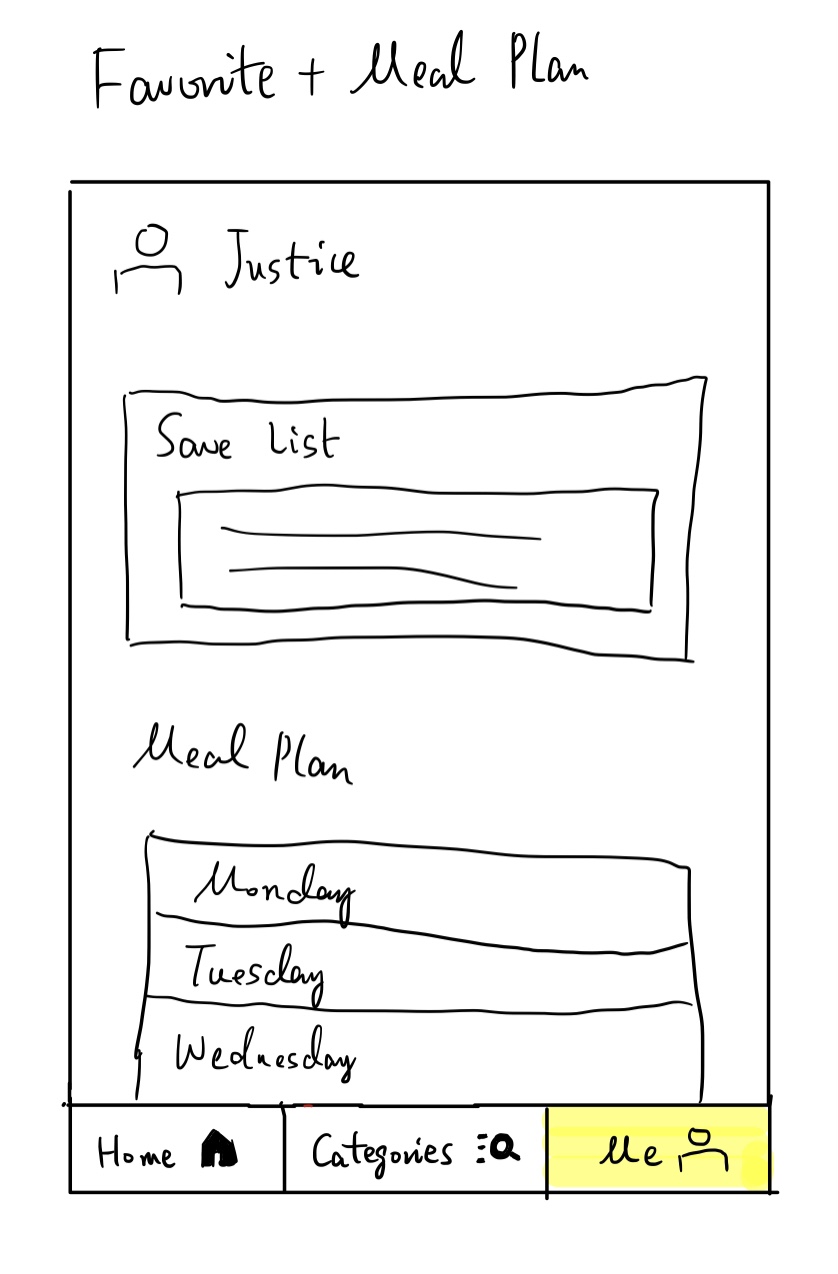 Favorite + Meal Plan
Justice
Save List
Meal Plan
Monday
Tuesday
Wednesday
Home Categories Me